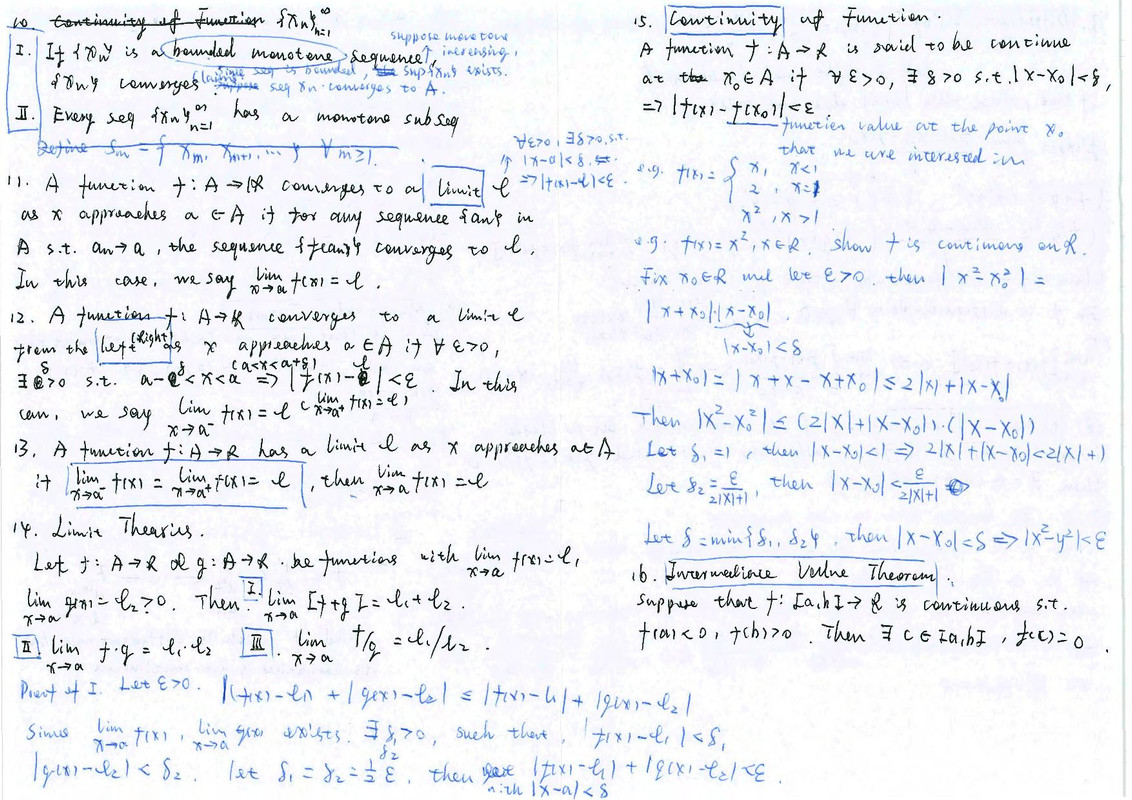 10. Continuity of Function {xn}∞n=1
I. If {xn} is a bounded monotone sequence,
suppose monotone
↑ increasing,
since seq is bounded, sup{xn} exists.
{xn} converges
Claim: seq xn converges to A.
II. Every seq {xn}∞n=1 has a monotone subseq
Define Sm = { xm, xm+1, ... } ∀ m≥1.
11. A function f: A→R converges to a limit ℓ
∀ε>0, ∃δ>0, s.t.
↑ |x-a|<δ,
=> |f(x)-ℓ|<ε
as x approaches a ∈ A if for any sequence {an} in
A s.t. an→a, the sequence {f(an)} converges to ℓ.
In this case, we say lim x→a f(x) = ℓ.
12. A function f: A→R converges to a limit ℓ
from the left (right) as x approaches a ∈ A if ∀ ε>0,
(a<x<a+δ)
∃ δ>0 s.t. a-δ<x<a => |f(x)-ℓ| <ε. In this
case, we say lim x→a⁻ f(x) = ℓ (lim x→a⁺ f(x) = ℓ)
13. A function f: A→R has a limit ℓ as x approaches a∈A
if lim x→a⁻ f(x) = lim x→a⁺ f(x) = ℓ, then lim x→a f(x) = ℓ
14. Limit Theories.
Let f: A→R & g: A→R be functions with lim x→a f(x) = ℓ1
lim x→a g(x) = ℓ2 > 0. Then I. lim x→a [f+g] = ℓ1+ℓ2.
II. lim x→a f·g = ℓ1·ℓ2 III. lim x→a f/g = ℓ1/ℓ2.
Proof of I. Let ε>0. |(f(x)-ℓ1) + |g(x)-ℓ2| ≤ |f(x)-ℓ1| + |g(x)-ℓ2|
Since lim x→a f(x), lim x→a g(x) exists. ∃ δ1>0, such that, |f(x)-ℓ1| < δ1,
δ2
|g(x)-ℓ2| < δ2. let δ1 = δ2 = ½ ε, then |f(x)-ℓ1| + |g(x)-ℓ2| <ε.
with |x-a|<δ
15. Continuity of Function.
A function f: A→R is said to be continue
at x0∈A if ∀ ε>0, ∃ δ>0 s.t. |x-x0|<δ,
=> |f(x)-f(x0)|<ε.
function value at the point x0
that we are interested in
e.g. f(x) = { x, x<1
2, x=1
x², x>1
e.g. f(x) = x², x∈R. show f is continuous on R.
Fix x0∈R and let ε>0, then |x²-x0²| =
|x+x0|·|x-x0|.
|x-x0|<δ
|x+x0| = |x+x-x+x0| ≤ 2|x|+|x-x0|
Then |x²-x0²| ≤ (2|x|+|x-x0|)·(|x-x0|)
Let δ1=1, then |x-x0|<1 => 2|x|+|x-x0|<2|x|+1
Let δ2 = ε/2|x|+1, then |x-x0| < ε/2|x|+1
Let δ = min{δ1, δ2}, then |x-x0| <δ => |x²-y²| <ε
16. Intermediate Value Theorem.
Suppose that f: [a,b] → R is continuous s.t.
f(a)<0, f(b)>0. Then ∃ c∈[a,b], f(c)=0.